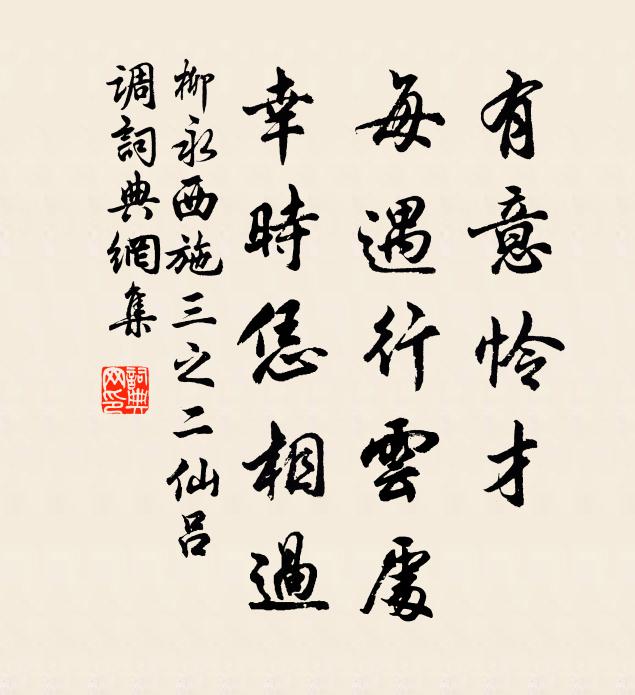 有意怜才
每遇行雲處
幸時恁相過
柳永西施三之二仙呂
調詞典網集
詞典
网印